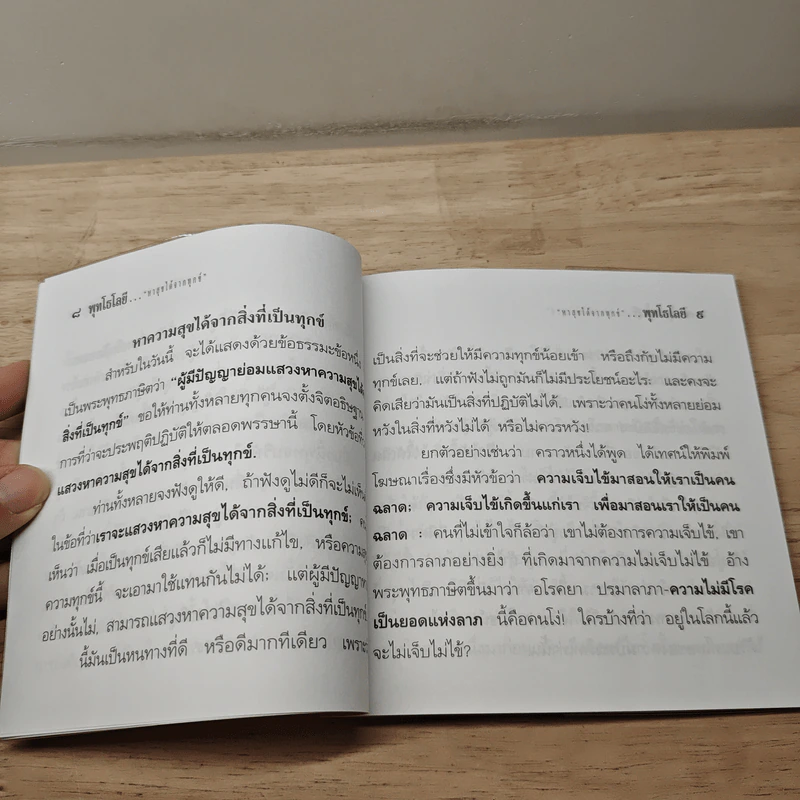 ๘ พุทโธโลยี... "หาสุขได้จากทุกข์"
หาความสุขได้จากสิ่งที่เป็นทุกข์
สำหรับในวันนี้ จะได้แสดงด้วยข้อธรรมะข้อหนึ่ง
เป็นพระพุทธภาษิตว่า "ผู้มีปัญญาย่อมแสวงหาความสุขได้
สิ่งที่เป็นทุกข์" ขอให้ท่านทั้งหลายทุกคนจงตั้งจิตอธิษฐาน
การที่ว่าจะประพฤติปฏิบัติให้ตลอดพรรษานี้ โดยหัวข้อที่ว่า
แสวงหาความสุขได้จากสิ่งที่เป็นทุกข์.
ท่านทั้งหลายจงฟังดูให้ดี. ถ้าฟังดูไม่ดีก็จะไม่เห็น
ในข้อที่ว่าเราจะแสวงหาความสุขได้จากสิ่งที่เป็นทุกข์;
เห็นว่า เมื่อเป็นทุกข์เสียแล้วก็ไม่มีทางแก้ไข. หรือความสุข
ความทุกข์นี้ จะเอามาใช้แทนกันไม่ได้; แต่ผู้มีปัญญา
อย่างนั้นไม่, สามารถแสวงหาความสุขได้จากสิ่งที่เป็นทุกข์
นี้มันเป็นหนทางที่ดี หรือดีมากทีเดียว เพราะ
"หาสุขได้จากทุกข์" ...พุทโธโลยี ๙
เป็นสิ่งที่จะช่วยให้มีความทุกข์น้อยเข้า หรือถึงกับไม่มีความ
ทุกข์เลย. แต่ถ้าฟังไม่ถูกมันก็ไม่มีประโยชน์อะไร: และคงจะ
คิดเสียว่ามันเป็นสิ่งที่ปฏิบัติไม่ได้. เพราะว่าคนโง่ทั้งหลายย่อม
หวังในสิ่งที่หวังไม่ได้ หรือไม่ควรหวัง!
ยกตัวอย่างเช่นว่า คราวหนึ่งได้พูด ได้เทศน์ให้พิมพ์
โฆษณาเรื่องซึ่งมีหัวข้อว่า ความเจ็บไข้มาสอนให้เราเป็นคน
ฉลาด; ความเจ็บไข้เกิดขึ้นแก่เรา เพื่อมาสอนเราให้เป็นคน
ฉลาด : คนที่ไม่เข้าใจก็ล้อว่า เขาไม่ต้องการความเจ็บไข้, เขา
ต้องการลาภอย่างยิ่ง ที่เกิดมาจากความไม่เจ็บไม่ไข้ อ้าง
พระพุทธภาษิตขึ้นมาว่า อโรคยา ปรมาลาภา-ความไม่มีโรค
เป็นยอดแห่งลาภ นี้คือคนโง่! ใครบ้างที่ว่า อยู่ในโลกนี้แล้ว
จะไม่เจ็บไม่ไข้?